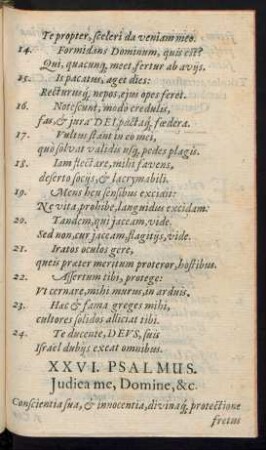 Te propter, sceleri da veniam meo.
14. Formidans Dominum, quis est?
Qui, quacunq́, meet, fertur ab avijs.
15. Is pacatus, aget dies:
Recturusq́, nepos, ejus opes feret.
16. Notescunt, modò credulis,
fas, & jura DEI, pactaq́, fœdera.
17. Vultus stant in eo mei,
quò solvat validis usq́, pedes plagis.
18. Iam flectare, mihi favens,
deserto socijs, & lacrymabili.
19. Mens heu sensibus excidit:
Ne vita, prohibe, languidus excidam.
20. Tandem, qui jaceam, vide.
Sed non, cur jaceam, flagitijs, vide.
21. Iratos oculos gere,
queis præter meritum proteror, hostibus.
22. Assertum tibi, protege:
Vt cernare, mihi murus, in arduis.
23. Hæc & fama greges mihi,
cultores solidos alliciat tibi.
24. Te ducente, DEVS, suis
Israël dubijs exeat omnibus.
XXVI. PSALMUS.
Judica me, Domine, &c.
Conscientia sua, & innocentia, divinaq́, protectione
fretus